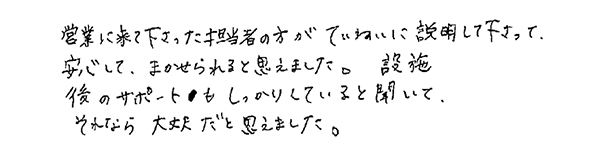 営業に来て下さった担当者の方が ていねいに 説明して下さって、
安心して、まかせられると思えました。 設施
後のサポートも しっかりしていると聞いて、
それなら 大丈夫だと思えました。